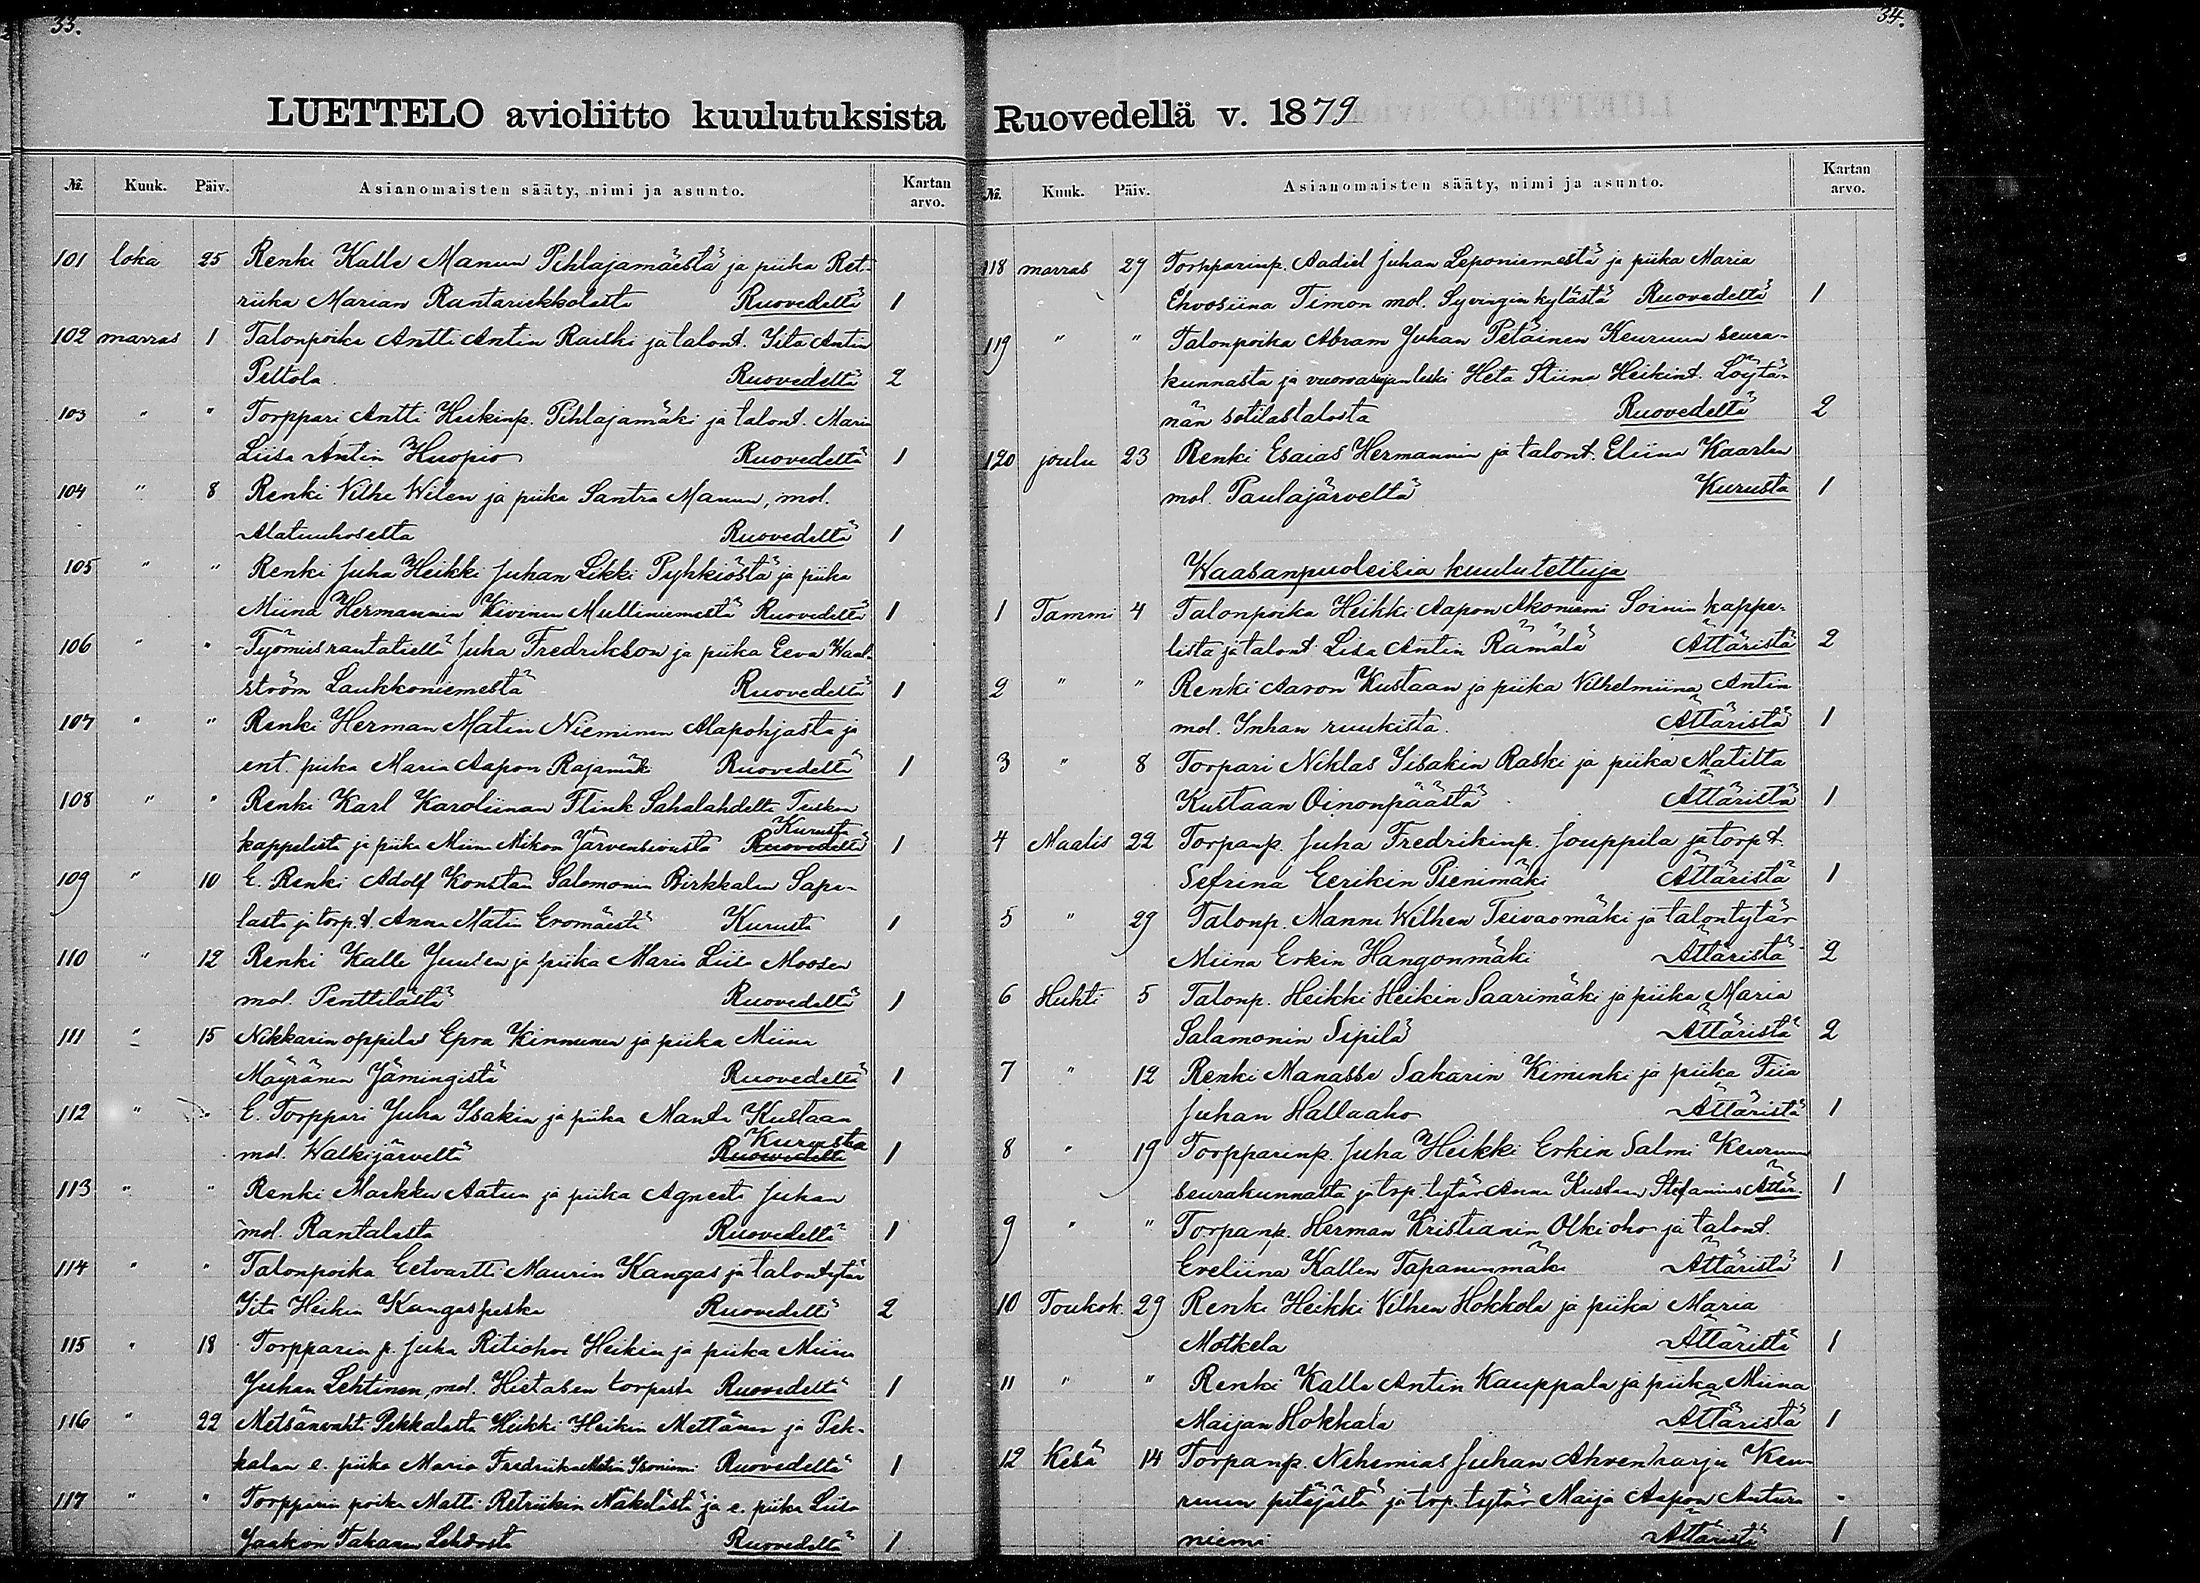 33.
LUETTELO avioliitto kuulutuksista
№. Kuuk. Päiv. Asianomaisten sääty, nimi ja asunto. Kartan arvo.
101 loka 25 Renki Kalle Manun Pihlajamäestä ja piika Ret-
riika Marian Ruovedeltä 1
102 marras 1 Talonpoika Antti Antin Raiski ja talont. Iita Antin
Peltola Ruovedeltä 2
103 " " Torppari Antti Heikinp. Pihlajamäki ja talont. Maria
Liisa Antin Huopio Ruovedeltä 1
104 " 8 Renki Vilhe Wilen ja piika Santra Manun, mol.
Ruovedeltä 1
105 " " Renki Juha Heikki Juhan Likki Pyhkiöstä ja piika
Miina Hermannin Kivinen Multiniemestä Ruovedeltä 1
106 " " Työmies rautatiellä Juha Fredrikson ja piika Eeva Waal-
ström Laukkoniemestä Ruovedeltä 1
107 " " Renki Herman Matin Nieminen Alapohjasta ja
ent. piika Maria Aapon Rajamäki Ruovedeltä 1
108 " " Renki Karl Karoliinan Flink Sahalahdelta
Kurusta
kappelista ja piika Miina Mikon Järvensivusta Ruovedeltä 1
109 " 10 E. Renki Adolf Konstan Salomonin Birkkalen Sapa-
lasta ja torp.t. Anna Matin Eromäestä Kurusta 1
110 " 12 Renki Kalle Juulen ja piika Maria Liisa Moosen
mol. Penttilästä Ruovedeltä 1
111 " 15 Nikkarin oppilas Epra Kinnunen ja piika Miina
Mäyränen Jämingistä Ruovedeltä 1
112 " " E. Torppari Juha Isakin ja piika Manta Kustaan
Kurusta
mol. Walkijärveltä Ruovedeltä 1
113 " " Renki Markku Aatun ja piika Agneta Juhan
mol. Rantalasta Ruovedeltä 1
114 " " Talonpoika Eetvartti Maurin Kangas ja talontytär
Iita Heikin Ruovedeltä 2
115 " 18 Torpparin p. Juha Ritiohoi Heikin ja piika Miina
Juhan Lehtinen, mol. Hietasen torpasta Ruovedeltä 1
116 " 22 Metsänvahti Pekkalasta Heikki Heikin Mettänen ja Pek-
kalan e. piika Maria Fredriika Matin Isoniemi Ruovedeltä 1
117 " " Torpparin poika Matti Retriikin Näkelästä ja e. piika Liisa
Jaakon Takanen Ruovedeltä 1
34.
Ruovedellä v. 1879
№. Kuuk. Päiv. Asianomaisten sääty, nimi ja asunto. Kartan arvo.
118 marras 29 Torpparinp. Aadiel Juhan Leponiemestä ja piika Maria
Timon mol. Syvinginkylästä Ruovedeltä 1
119 " " Talonpoika Abram Juhan Petäinen Keuruun seura-
kunnasta ja leski Heta Stiina Heikint. Löytä-
nän sotilastalosta Ruovedeltä 2
120 joulu 23 Renki Esaias Hermannin ja talont. Eliina Kaarlen
mol. Paulajärveltä Kurusta 1
Waasanpuoleisia kuulutettuja
1 Tammi 4 Talonpoika Heikki Aapon Akoniemi Soinin kappe-
lista ja talont. Lisa Antin Rämälä Ättäristä 2
2 " " Renki Aaron Kustaan ja piika Vilhelmiina Antin
mol. Inhan ruukista. Ättäristä 1
3 " 8 Torpari Niklas Iisakin Raski ja piika Matilta
Kustaan Oinonpäästä Ättäristä 1
4 Maalis 22 Torpanp. Juha Fredrikinp. Jouppila ja torp.t.
Sefrina Eerikin Pienimäki Ättäristä 1
5 " 29 Talonp. Manne Wilhen Teivaomäki ja talontytär
Miina Erkin Hangonmäki Ättäristä 2
6 Huhti 5 Talonp. Heikki Heikin Saarimäki ja piika Maria
Salamonin Sipilä Ättäristä 2
7 " 12 Renki Manasse Sakarin Kiminki ja piika Fiia
Juhan Hallaaho Ättäristä 1
8 " 19 Torpparinp. Juha Heikki Erkin Salmi Keuruun
seurakunnasta ja torp. tytär Anna Kustaan Stefanius Ättär. 1
9 " " Torpanp. Herman Kristianin Olkioho ja talont.
Eveliina Kallen Tapaninmäki Ättäristä 1
10 Toukok. 29 Renki Heikki Vilhen Hokkola ja piika Maria
Motkela Ättäristä 1
11 " " Renki Kalle Antin Kauppala ja piika Miina
Maijan Hokkala Ättäristä 1
12 Kesä 14 Torpanp. Nehemias Juhan Ahvenharju Keu-
ruun pitäjästä ja torp. tytär Maija Aapon Antura
niemi Ättäristä 1